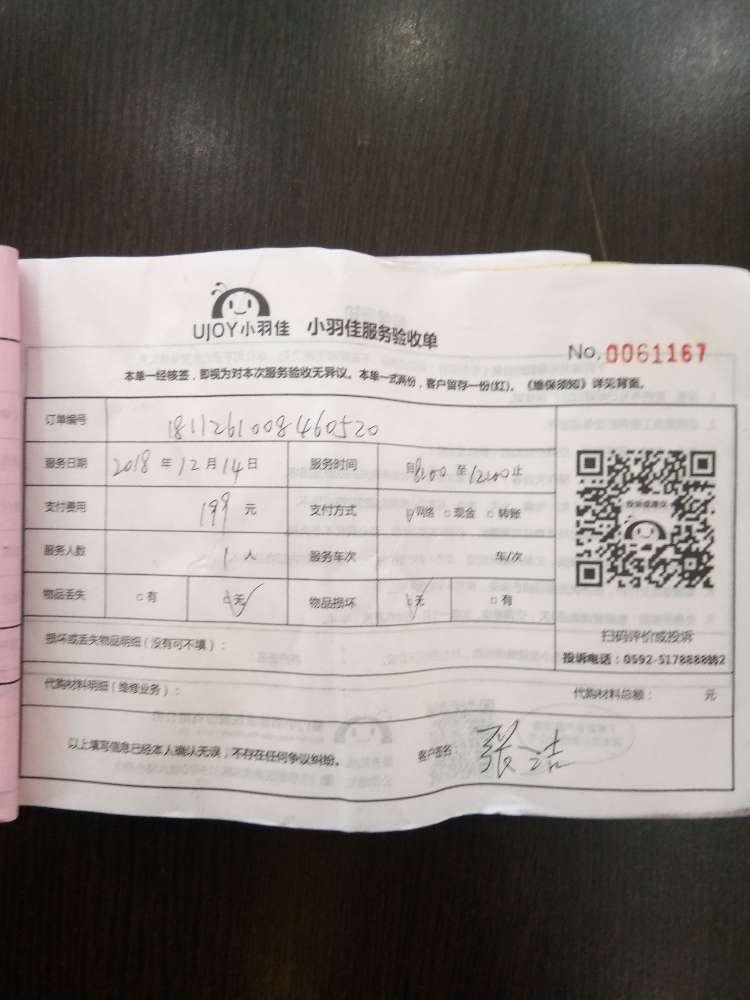 UJOY小羽佳 小羽佳服务验收单
No. 0061167
本单一经核签,即视为对本次服务验收无异议。本单一式两份,客户留存一份(红)。《维保须知》详见背面。
订单编号 1811261008460520
服务日期 2018 年 12 月 14 日 服务时间 自 8:00 至 12:00 止
支付费用 199 元 支付方式 网络 □ 现金 □ 转账
服务人数 1 人 服务车次 车/次
物品丢失 □ 有 无 物品损坏 无 □ 有
损坏或丢失物品明细(没有可不填):
扫码评价或投诉
投诉电话:0592-5178888转2
代购材料明细(维修业务): 代购材料总额: 元
以上填写信息已经本人确认无误,不存在任何争议纠纷。 客户签名: 张洁